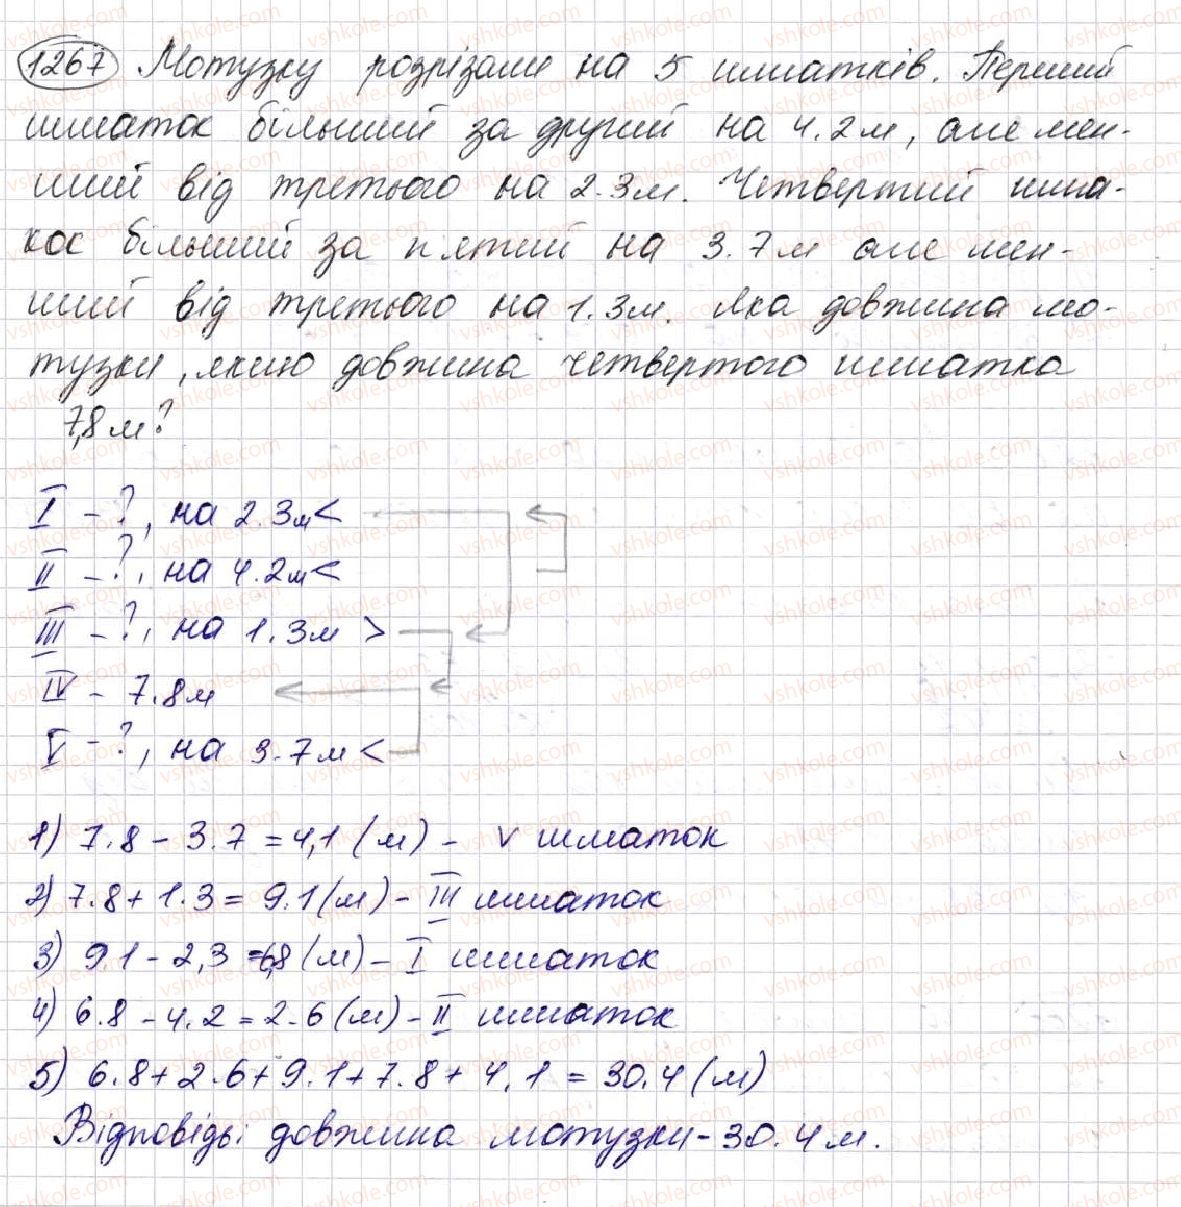 1267 Мотузку розрізали на 5 шматків. Перший
шматок більший за другий на 4.2м, але мен-
ший від третього на 2.3м. Четвертий шма-
кос більший за п'ятий на 3.7м але мен-
ший від третього на 1.3м. Яка довжина мо-
тузки, якщо довжина четвертого шматка
7,8м?
I - ?, на 2.3м <
II - ?, на 4.2м <
III - ?, на 1.3м >
IV - 7.8м
V - ?, на 3.7м <
1) 7.8 - 3.7 = 4,1 (м) - V шматок
2) 7.8 + 1.3 = 9.1 (м) - III шматок
3) 9.1 - 2,3 = 6,8 (м) - I шматок
4) 6.8 - 4.2 = 2.6 (м) - II шматок
5) 6.8 + 2.6 + 9.1 + 7.8 + 4,1 = 30.4 (м)
Відповідь: довжина мотузки - 30.4м.